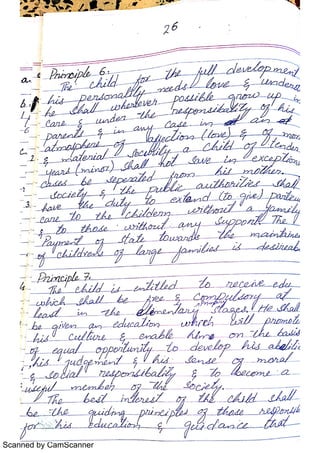 26
Principle 6:
The child for the full development
his personality needs love & underst
he shall wherever possible grow up in
care & under the responsibility of his
parents & in any case in an at
atmosphere of affection (love) & of mora
& material security a child of tender
years (minor) shall not save in exception
cases be seperated from his mother.
Society & the public authorities shall
have the duty to extand (to give) particu
care to the childern without a family
& to those without any support. The
Payment of state towards the maintaine
of childrens of large families is desireab
Principle 7.
The child is entitled to receive edu
which shall be free & compulsory at
least in the elementary stages. He shall
be given an education which will promote
his culture & enable him on the basis
of equal opportunity to develop his abilitie
his judgement & his sense of moral
& social responsibality & to become a
useful member of the society.
The best interest of the child shall
be the guiding principles of those responsib
for his education & guidance that
Scanned by CamScanner